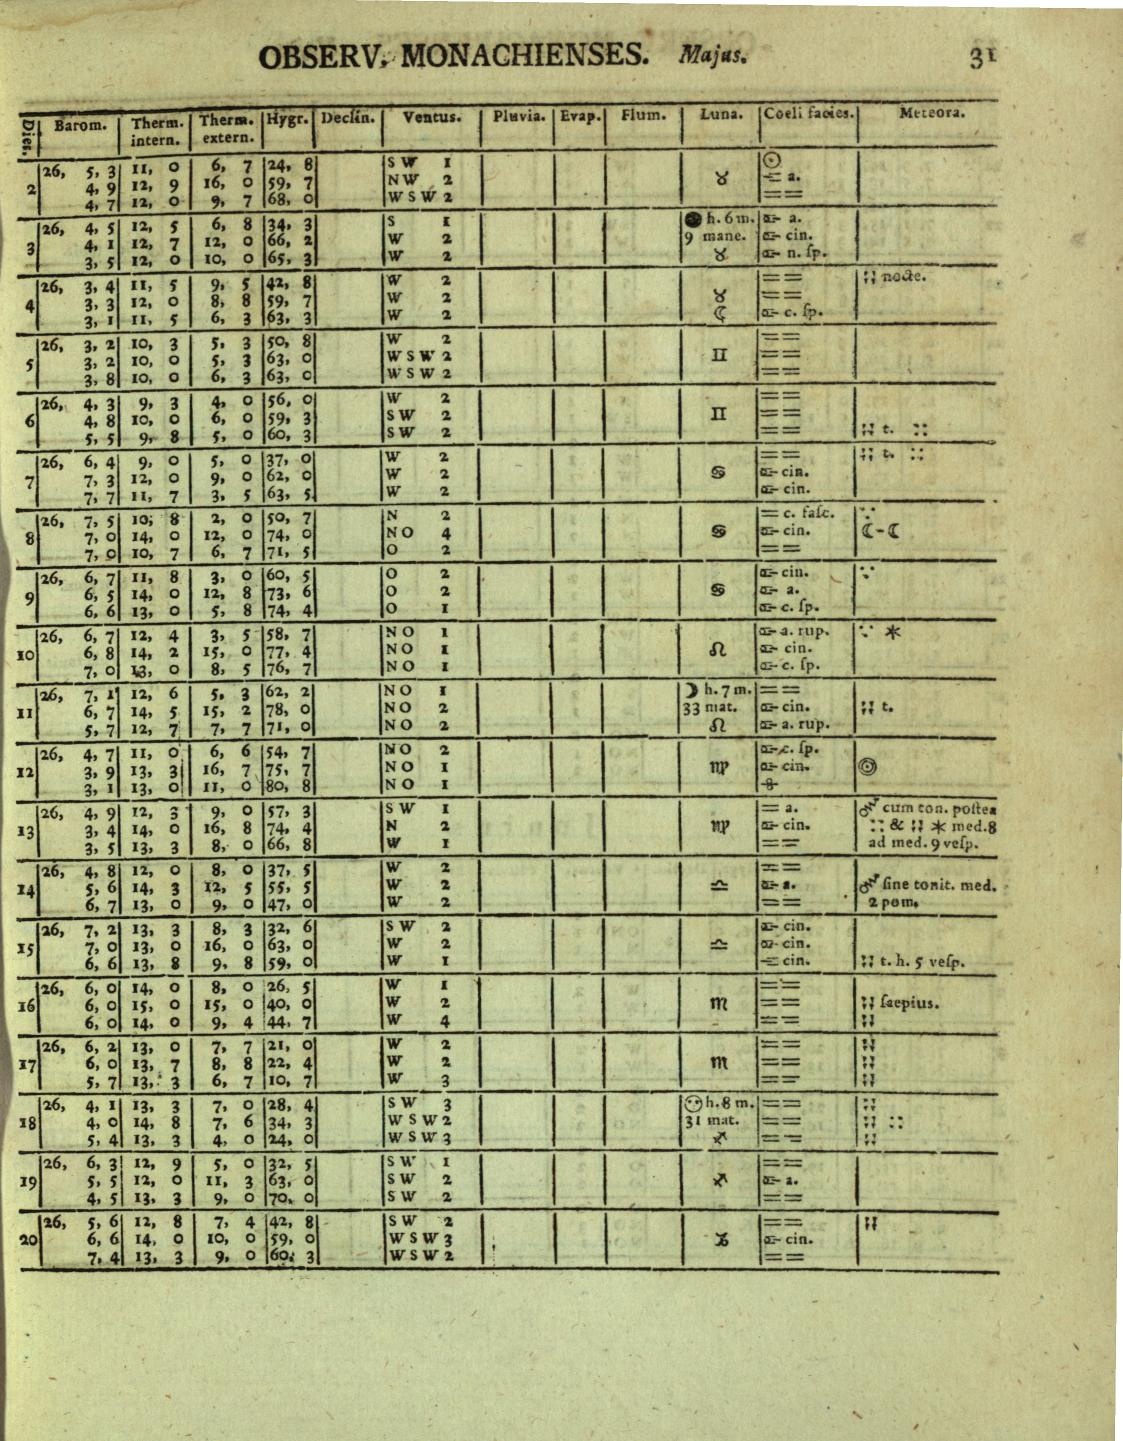 OBSERV. MONACHIENSES. Majus. 31
Dies. Barom. Therm. intern. Therm. extern. Hygr. Declin. Ventus. Pluvia. Evap. Flum. Luna. Coeli facies. Meteora.
26, 5, 3 11, 0 6, 7 24, 8 S W 1 ☉
2 4, 9 12, 9 16, 0 59, 7 N W 2 ♉ a.
4, 7 12, 0 9, 7 68, 0 W S W 2 ==
26, 4, 5 12, 5 6, 8 34, 3 S 1 ● h. 6 m. a.
3 4, 1 12, 7 12, 0 66, 2 W 2 9 mane. cin.
3, 5 12, 0 10, 0 65, 3 W 2 ♉ n. ſp.
26, 3, 4 11, 5 9, 5 42, 8 W 2 == nocte.
4 3, 3 12, 0 8, 8 59, 7 W 2 ♉ ==
3, 1 11, 5 6, 3 63, 3 W 2 ☾ c. ſp.
26, 3, 2 10, 3 5, 3 50, 8 W 2 ==
5 3, 2 10, 0 5, 3 63, 0 W S W 2 ♊ ==
3, 8 10, 0 6, 3 63, 0 W S W 2 ==
26, 4, 3 9, 3 4, 0 56, 0 W 2 ==
6 4, 8 10, 0 6, 0 59, 3 S W 2 ♊ ==
5, 5 9, 8 5, 0 60, 3 S W 2 == t. ::
26, 6, 4 9, 0 5, 0 37, 0 W 2 == t. ::
7 7, 3 12, 0 9, 0 62, 0 W 2 ♋ cin.
7, 7 11, 7 3, 5 63, 5 W 2 cin.
26, 7, 5 10; 8 2, 0 50, 7 N 2 = c. faſc. ∵
8 7, 0 14, 0 12, 0 74, 0 N O 4 ♋ cin. ☾-☾
7, 0 10, 7 6, 7 71, 5 O 2 ==
26, 6, 7 11, 8 3, 0 60, 5 O 2 cin. ∵
9 6, 5 14, 0 12, 8 73, 6 O 2 ♋ a.
6, 6 13, 0 5, 8 74, 4 O 1 c. ſp.
26, 6, 7 12, 4 3, 5 58, 7 N O 1 a. rup. ∵ *
10 6, 8 14, 2 15, 0 77, 4 N O 1 ♌ cin.
7, 0 13, 0 8, 5 76, 7 N O 1 c. ſp.
26, 7, 1 12, 6 5, 3 62, 2 N O 1 ☽ h. 7 m. ==
11 6, 7 14, 5 15, 2 78, 0 N O 2 33 mat. cin. t.
5, 7 12, 7 7, 7 71, 0 N O 2 ♌ a. rup.
26, 4, 7 11, 0 6, 6 54, 7 N O 2 c. ſp.
12 3, 9 13, 3 16, 7 75, 7 N O 1 ♍ cin. ◎
3, 1 13, 0 11, 0 80, 8 N O 1
26, 4, 9 12, 3 9, 0 57, 3 S W 1 = a. cum ton. poſtea
13 3, 4 14, 0 16, 8 74, 4 N 2 ♍ cin. :: & * med. 8
3, 5 13, 3 8, 0 66, 8 W 1 == ad med. 9 veſp.
26, 4, 8 12, 0 8, 0 37, 5 W 2 ==
14 5, 6 14, 3 12, 5 55, 5 W 2 ♎ a. ſine tonit. med.
6, 7 13, 0 9, 0 47, 0 W 2 == 2 pom.
26, 7, 2 13, 3 8, 3 32, 6 S W 2 cin.
15 7, 0 13, 0 16, 0 63, 0 W 2 ♎ cin.
6, 6 13, 8 9, 8 59, 0 W 1 cin. t. h. 5 veſp.
26, 6, 0 14, 0 8, 0 26, 5 W 1 ==
16 6, 0 15, 0 15, 0 40, 0 W 2 ♏ == ſaepius.
6, 0 14, 0 9, 4 44, 7 W 4 ==
26, 6, 2 13, 0 7, 7 21, 0 W 2 ==
17 6, 0 13, 7 8, 8 22, 4 W 2 ♏ ==
5, 7 13, 3 6, 7 10, 7 W 3 ==
26, 4, 1 13, 3 7, 0 28, 4 S W 3 h. 8 m. ==
18 4, 0 14, 8 7, 6 34, 3 W S W 2 31 mat. == ::
5, 4 13, 3 4, 0 24, 0 W S W 3 ♐ ==
26, 6, 3 12, 9 5, 0 32, 5 S W 1 ==
19 5, 5 12, 0 11, 3 63, 0 S W 2 ♐ a.
4, 5 13, 3 9, 0 70, 0 S W 2 ==
26, 5, 6 12, 8 7, 4 42, 8 S W 2 ==
20 6, 6 14, 0 10, 0 59, 0 W S W 3 ♑ cin.
7, 4 13, 3 9, 0 60, 3 W S W 2 ==